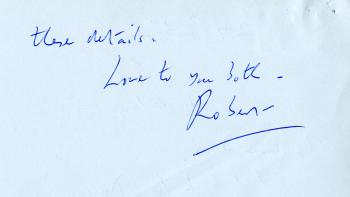 these details.
Love to you both -
Robert